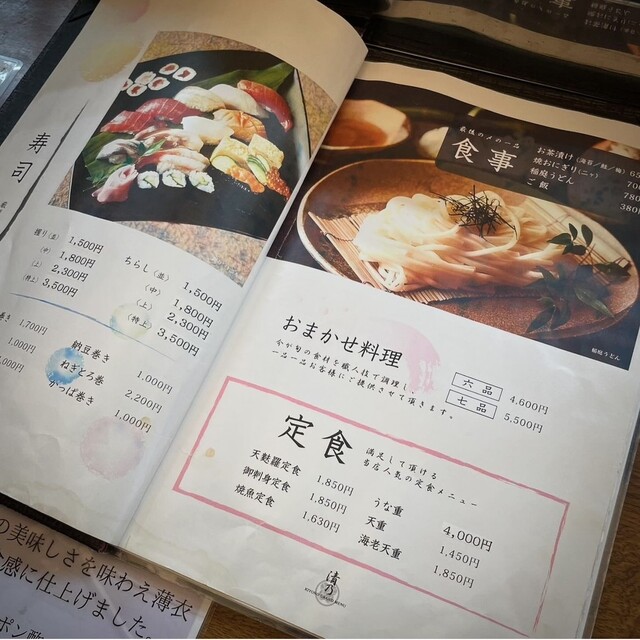 寿司
握り(並) 1,500円
(中) 1,800円
(上) 2,300円
(特上) 3,500円
ちらし(並) 1,500円
(中) 1,800円
(上) 2,300円
(特上) 3,500円
1,700円
1,000円
納豆巻き 1,000円
ねぎとろ巻 2,200円
かっぱ巻き 1,000円
最後の〆の一品
食事
お茶漬け(海苔/鮭/梅)
焼おにぎり(二ヶ)
稲庭うどん
ご飯
稲庭うどん
おまかせ料理
今が旬の食材を職人技で調理し
一品一品お客様にご提供させて頂きます。
六品 4,600円
七品 5,500円
定食
満足して頂ける
当店人気の定食メニュー
天麩羅定食 1,850円
御刺身定食 1,850円
焼魚定食 1,630円
うな重 4,000円
天重 1,450円
海老天重 1,850円
の美味しさを味わえ薄衣
感に仕上げました。
ポン酢